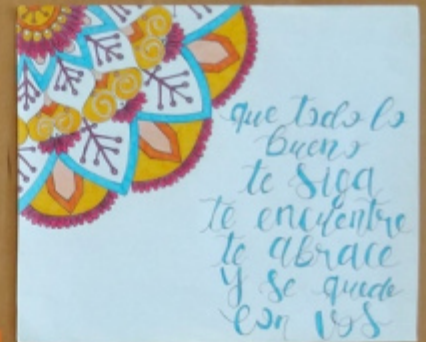 que todo lo
bueno
te siga
te encuentre
te abrace
y se quede
con vos